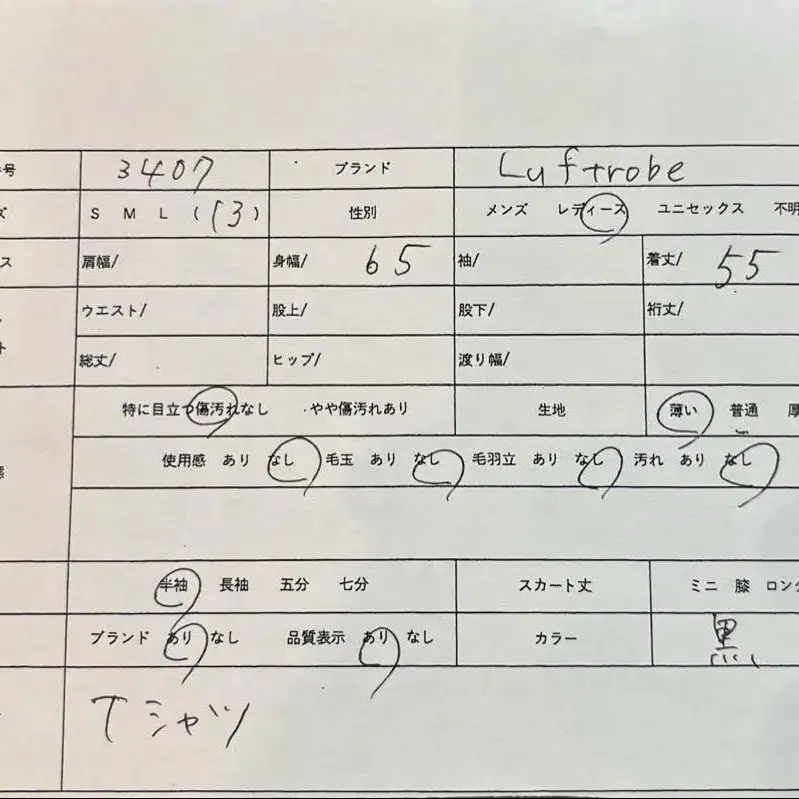 号 3407 ブランド Luftrobe
ズ S M L (13) 性別 メンズ レディース ユニセックス 不明
ス 肩幅/ 身幅/ 65 袖/ 着丈/ 55
ウエスト/ 股上/ 股下/ 裄丈/
ト 総丈/ ヒップ/ 渡り幅/
特に目立つ傷汚れなし ・やや傷汚れあり 生地 薄い 普通 厚
使用感 あり なし 毛玉 あり なし 毛羽立 あり なし 汚れ あり なし
態
半袖 長袖 五分 七分 スカート丈 ミニ 膝 ロング
ブランド あり なし 品質表示 あり なし カラー 黒
Tシャツ